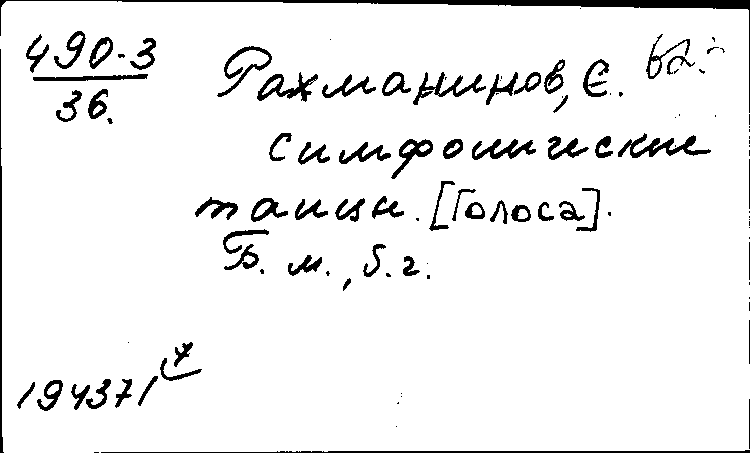 490-3
36.
Рахманинов, С.
Симфонические
танцы. [Голоса].
Б. м., б. г.
194371 7